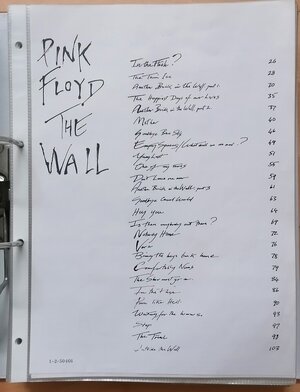 PINK
FLOYD
THE
WALL
In the Flesh? 26
The Thin Ice 28
Another Brick in the Wall part 1 30
The Happiest Days of our Lives 35
Another Brick in the Wall part 2 37
Mother 40
Goodbye Blue Sky 46
Empty Spaces/ 49
Young Lust 51
One of my turns 55
Don't leave me now 59
Another Brick in the Wall part 3 61
Goodbye Cruel World 63
Hey you 64
Is there anybody out there? 69
Nobody Home 72
Vera 76
Bring the boys back home 78
Comfortably Numb 79
The Show must go on 84
In the Flesh 86
Run like Hell 90
Waiting for the worms 93
Stop 97
The Trial 98
Outside the Wall 103
1-2-50466